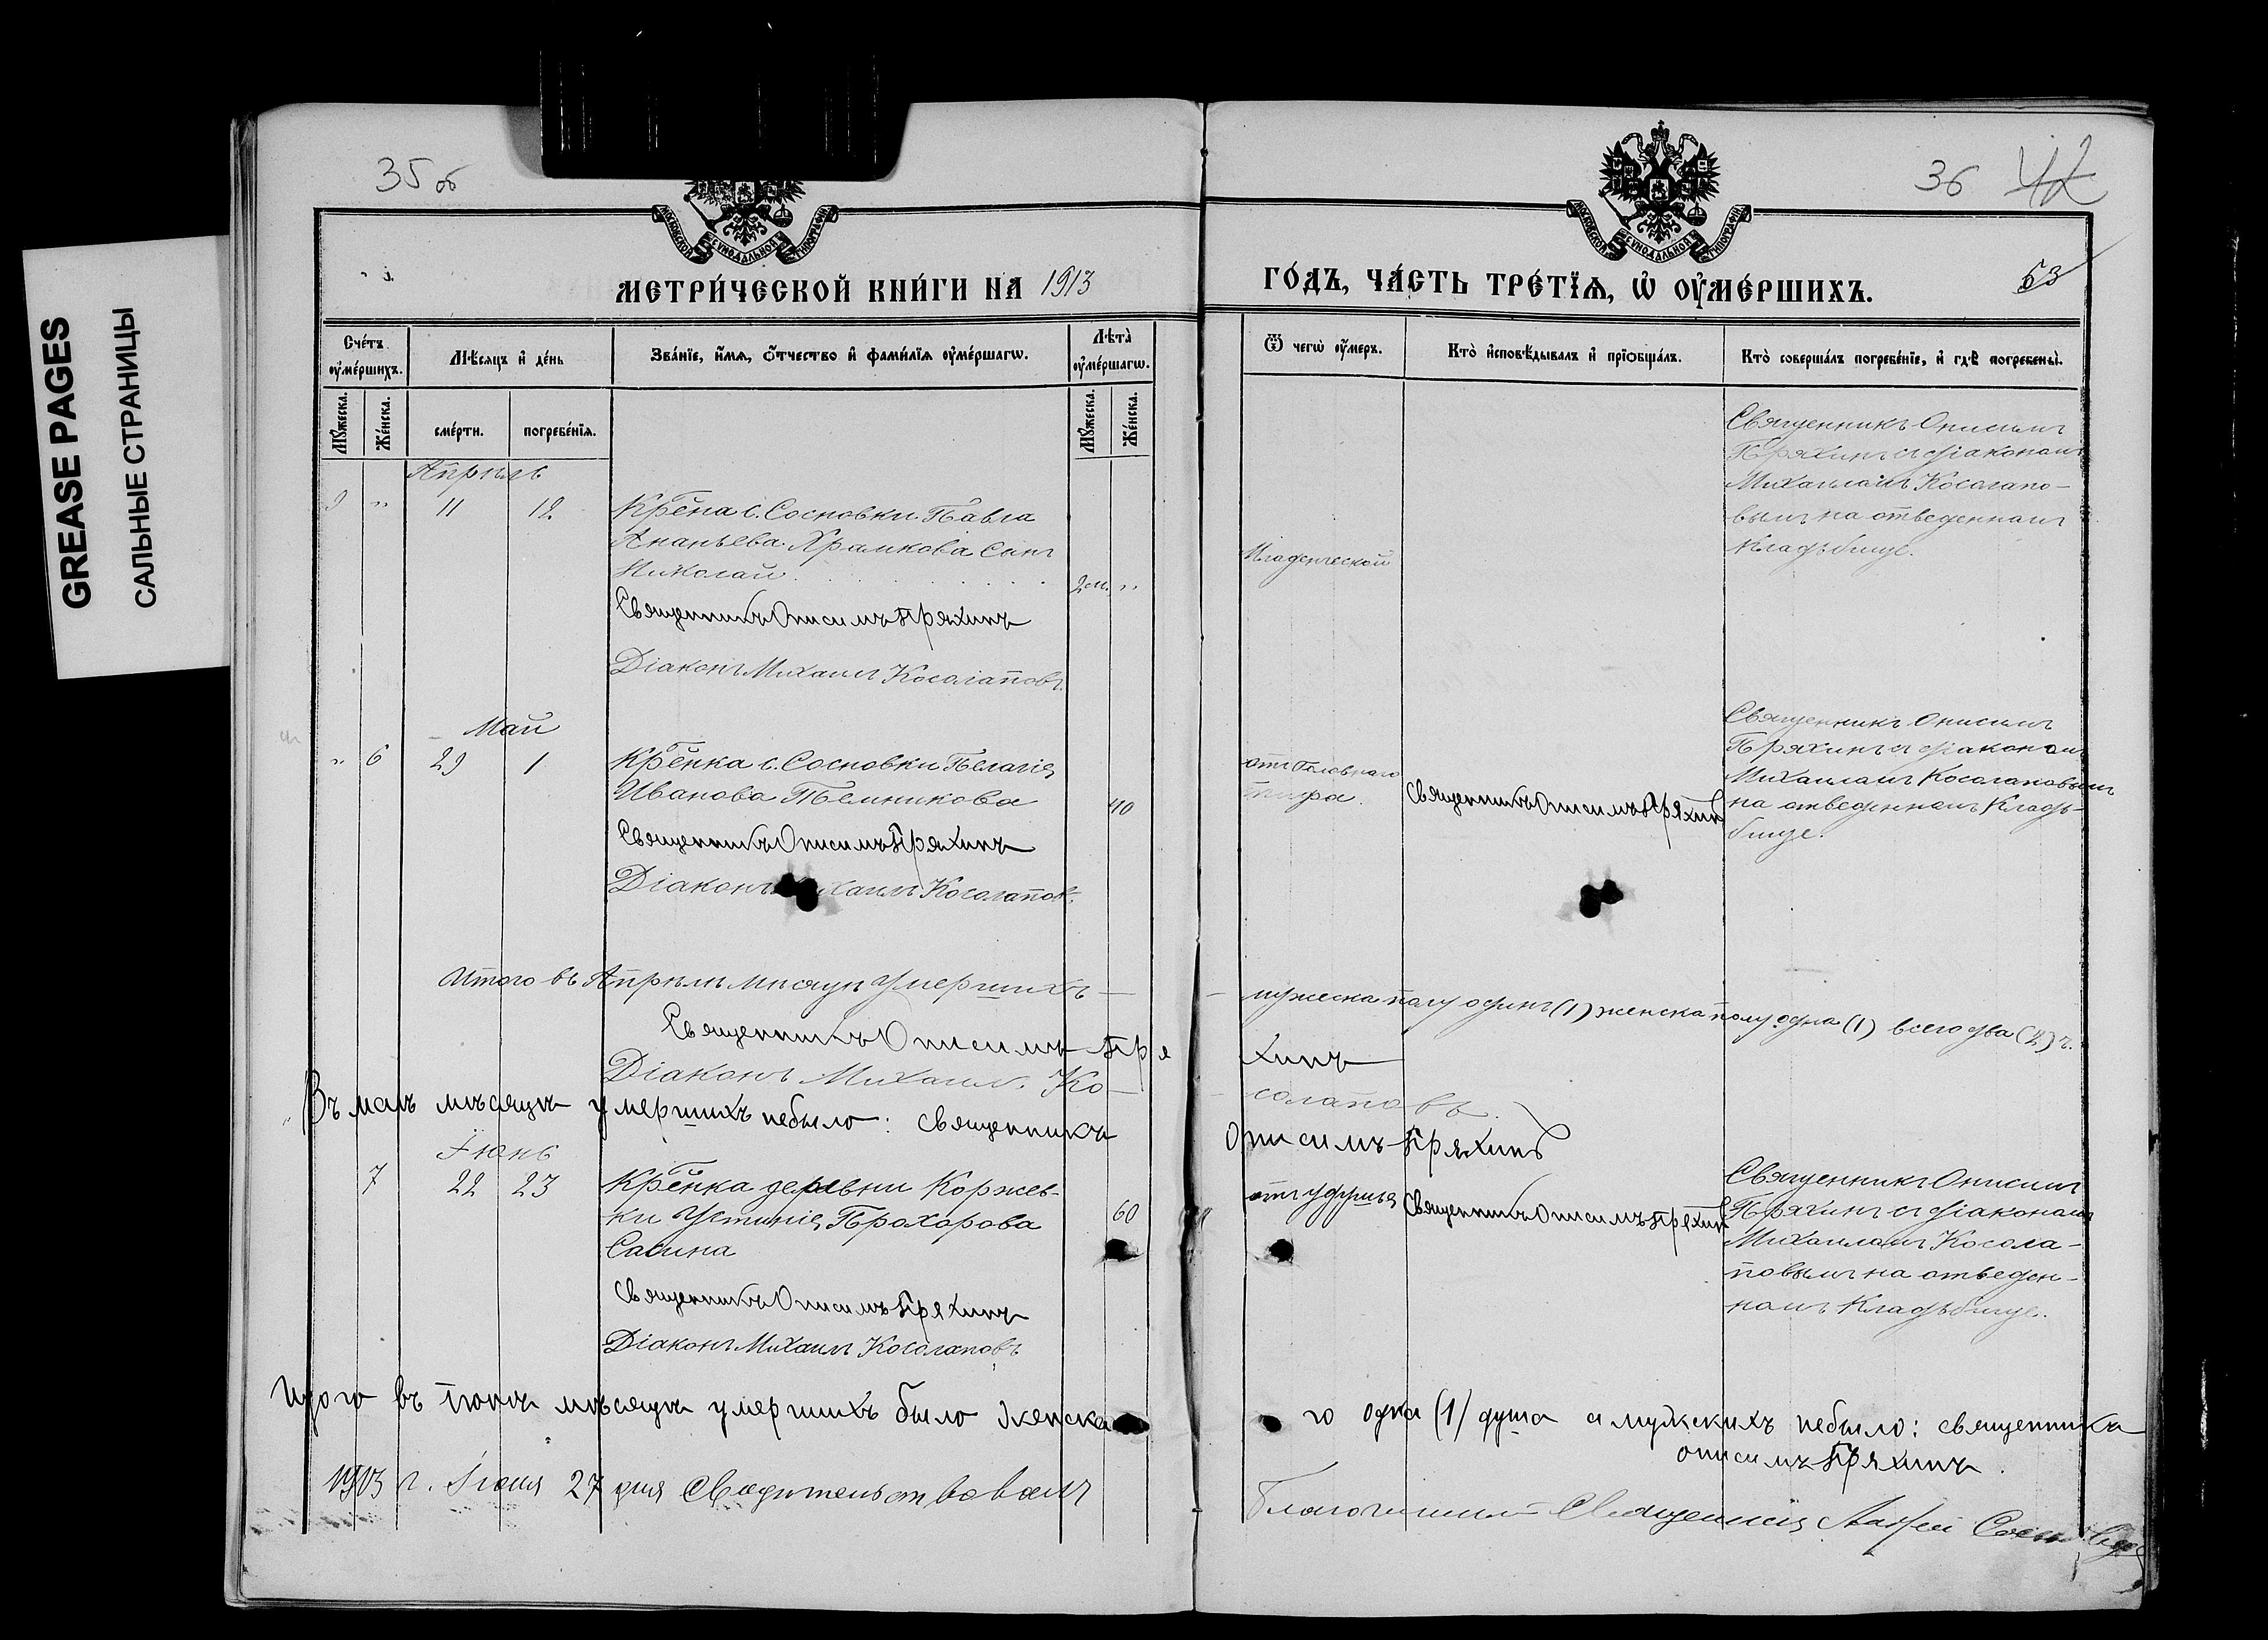 GREASE PAGES
САЛЬНЫЕ СТРАНИЦЫ
35 об
36 42
МОСКОВСКОЙ СѴНОДАЛЬНОЙ ТИПОГРАФІИ
МОСКОВСКОЙ СѴНОДАЛЬНОЙ ТИПОГРАФІИ
МЕТРИ́ЧЕСКОЙ КНИ́ГИ НА 1913
ГО́ДЪ, ЧА́СТЬ ТРЕ́ТЇѦ, Ѡ҆ ОУ҆МЕ́РШИХЪ.
53
Сче́тъ оу҆ме́ршихъ.
Мѣ́сѧцъ и҆ де́нь
Зва́нїе, и҆́мѧ, ѻ҆́тчество и҆ фами́лїѧ оу҆ме́ршагѡ.
Лѣ́та оу҆ме́ршагѡ.
Мꙋ́жеска.
Же́нска.
сме́рти.
погребе́нїѧ.
Мꙋ́жеска.
Же́нска.
Ѿ чегѡ̀ оу҆́меръ.
Кто̀ и҆сповѣ́дывалъ и҆ прїѡбща́лъ.
Кто̀ соверша́лъ погребе́нїе, и҆ гдѣ̀ погребены̀.
Апрѣль
9 " 11 12
Крена с. Сосновки Павла
Ананьева Храмкова сынъ
Николай
2 м. "
Священникъ Онисимъ Пряхинъ
Діаконъ Михаилъ Косолаповъ
Младенческой
Священникъ Онисимъ
Пряхинъ съ діакономъ
Михаиломъ Косолапо-
вымъ на отведенномъ
кладьбище.
Май
" 6 29 1
Кренка с. Сосновки Пелагія
Иванова Темникова
40
Священникъ Онисимъ Пряхинъ
Діаконъ Михаилъ Косолаповъ
отъ Головнаго
Священникъ Онисимъ Пряхинъ
Священникъ Онисимъ
Пряхинъ съ діакономъ
Михаиломъ Косолаповымъ
на отведенномъ Кладь-
бище.
Итого въ Апрѣли мисяцы умершихъ —
— мужеска полу одинъ (1) женска полу одна (1) всего два (2) ч.
Священникъ Онисимъ Пря
хинъ
Діаконъ Михаилъ Ко-
солаповъ.
Въ маѣ мѣсяцѣ умершихъ небыло: священникъ
Онисимъ Пряхинъ
Іюнь
7 22 23
Кренка деревни Коржев-
ки Устинія Прохорова
Сасина
60
Священникъ Онисимъ Пряхинъ
Діаконъ Михаилъ Косолаповъ
отъ удушья
Священникъ Онисимъ Пряхинъ
Священникъ Онисимъ
Пряхинъ съ діакономъ
Михаиломъ Косола-
повымъ на отведен-
номъ Кладьбище.
Итого въ іюнѣ мѣсяцѣ умершихъ было женска
го одна (1) душа а мужскихъ небыло: священника
онисимъ Пряхинъ.
1913 г. Іюня 27 дня Свидѣтельствовалъ
Благочинный Священникъ